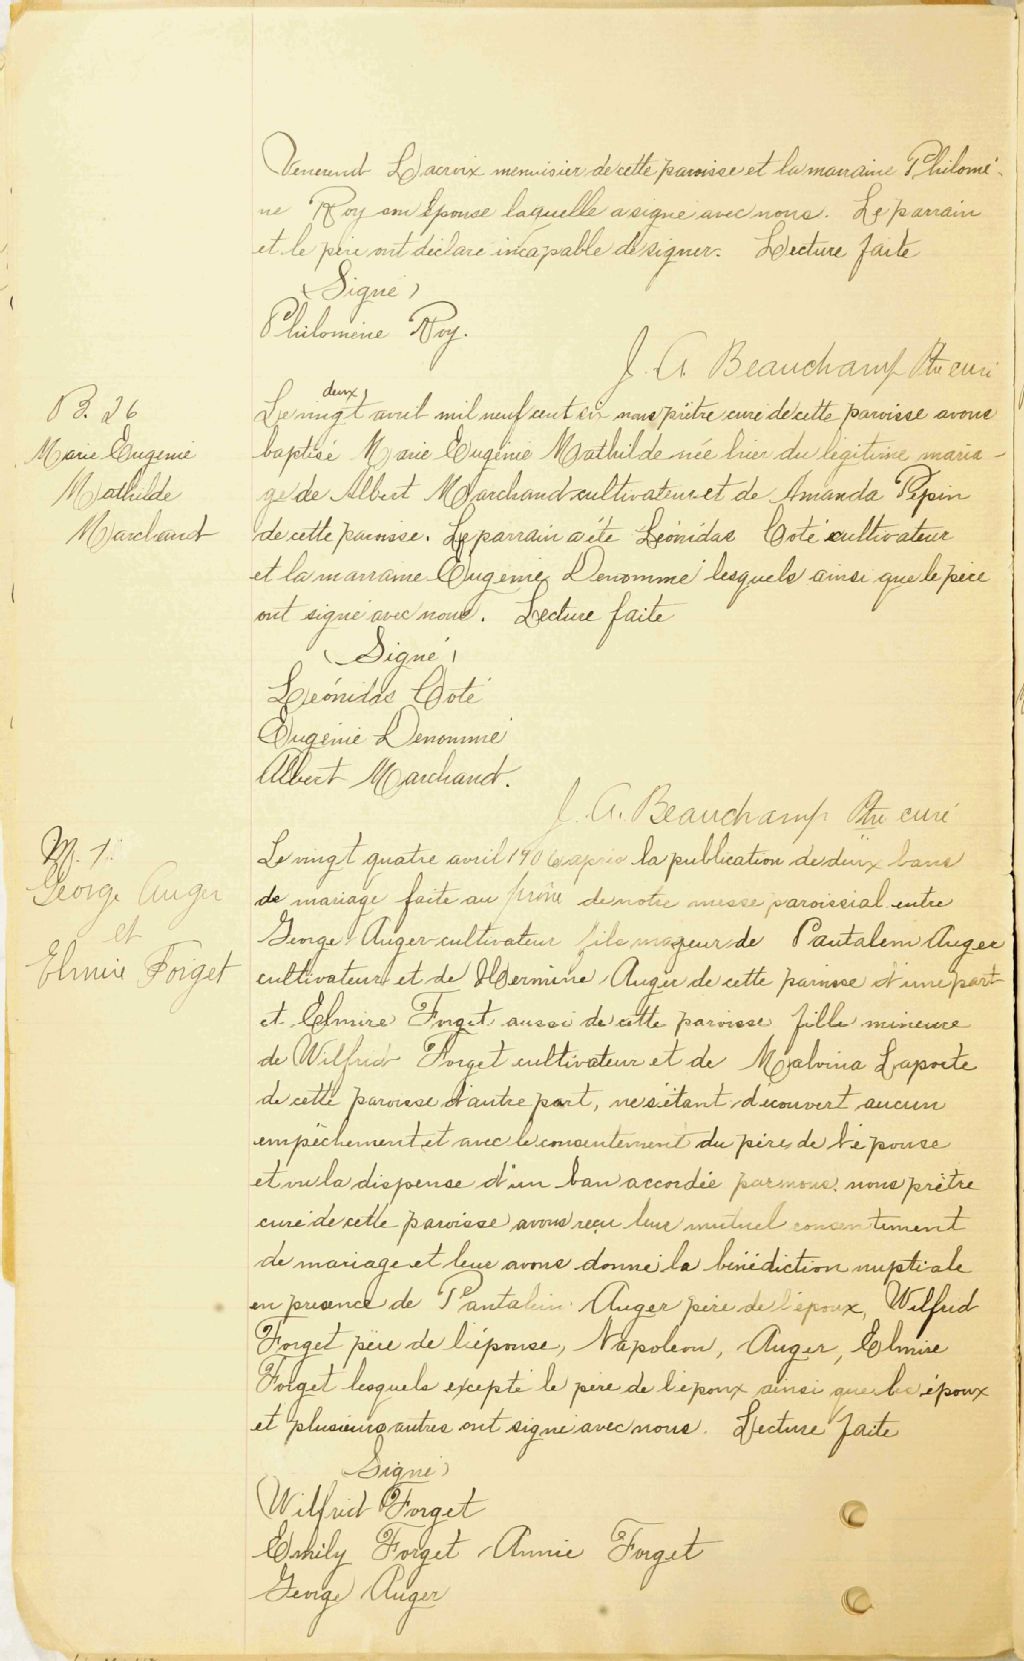 Venerend Lacroix menuisier de cette paroisse et la marraine Philomè-
ne Roy son épouse laquelle a signé avec nous. Le parrain
et le père ont déclaré incapable de signer. Lecture faite
(Signé)
Philomène Roy.
J. A. Beauchamp Ptre curé
B. 26
Marie Eugenie
Mathilde
Marchand
deux
Le vingt avril mil neuf cent six nous prêtre curé de cette paroisse avons
baptisé Marie Eugénie Mathilde née hier du légitime maria-
ge de Albert Marchand cultivateur et de Amanda Pepin
de cette paroisse. Le parrain a été Léonidas Coté cultivateur
et la marraine Eugenie Denommé lesquels ainsi que le père
ont signé avec nous. Lecture faite
(Signé)
Léonidas Coté
Eugénie Denommé
Albert Marchand.
J. A. Beauchamp Ptre curé
M. 7
George Auger
et
Elmire Forget
Le vingt quatre avril 1906 après la publication de deux bans
de mariage faite au prône de notre messe paroissial entre
George Auger cultivateur fils majeur de Pantaleon Auger
cultivateur et de Hermine Auger de cette paroisse d'une part
et Elmire Forget aussi de cette paroisse fille mineure
de Wilfrid Forget cultivateur et de Malvina Laporte
de cette paroisse d'autre part, ne s'étant découvert aucun
empêchement et avec le consentement du père de l'épouse
et vu la dispense d'un ban accordée par nous, nous prêtre
curé de cette paroisse avons reçu leur mutuel consentement
de mariage et leur avons donné la bénédiction nuptiale
en présence de Pantaléon Auger père de l'époux, Wilfrid
Forget père de l'épouse, Napoleon, Auger, Elmire
Forget lesquels excepté le père de l'époux ainsi que les époux
et plusieurs autres ont signé avec nous. Lecture faite
(Signé)
Wilfrid Forget
Emily Forget Annie Forget
George Auger